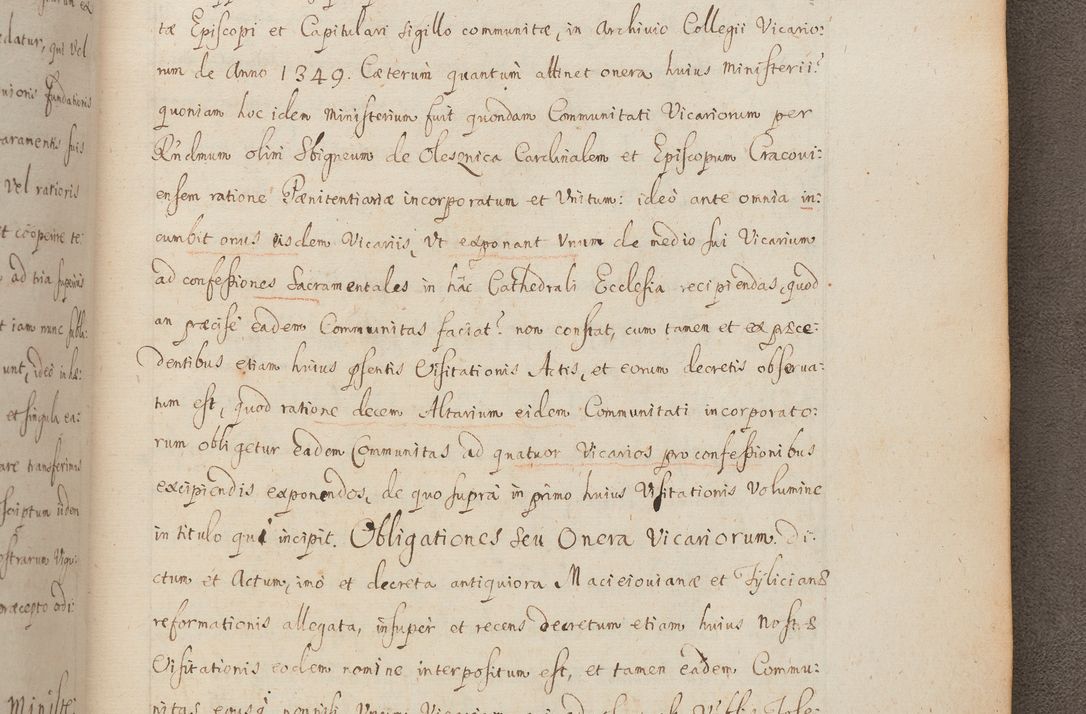 datur, qui vel
Fundationis
aramentis suis
vel rationis
ad tria
t iam nunc
unt, ideo in
et singula ea:
are transferimus
scriptum
ostrarum
præcepto
Ministe:
tæ Episcopi et Capitulari sigillo communitæ, in Archivio Collegii Vicario:
rum de Anno 1349. Cæterum quantum attinet onera huius Ministerii:
quoniam hoc idem Ministerium fuit quondam Communitati Vicariorum per
Rndmum olim Sbigneum de Olesznica Cardinalem et Episcopum Cracovi:
ensem ratione Pænitentiariæ incorporatum et Unitum: ideo ante omnia in:
cumbit onus eisdem Vicariis, Ut exponant Unum de medio sui Vicarium
ad confessiones Sacramentales in hac Cathedrali Ecclesia recipiendas, quod
an præcise eadem Communitas faciat? non constat, cum tamen et ex præce:
dentibus etiam huius psentis Visitationis Actis, et eorum decretis observa:
tum est, quod ratione decem Altarium eidem Communitati incorporato:
rum obligetur eadem Communitas ad quatuor Vicarios pro confessionibus
excipiendis exponendos, de quo supra in primo huius Visitationis Volumine
in titulo qui incipit. Obligationes seu Onera Vicariorum. Di:
ctum et Actum, imo et decreta antiquiora Macieiovianæ et Tyliciane
reformationis allegata, insuper et recens decretum etiam huius Nostre
Visitationis eodem nomine interpositum est, et tamen eadem Commu: